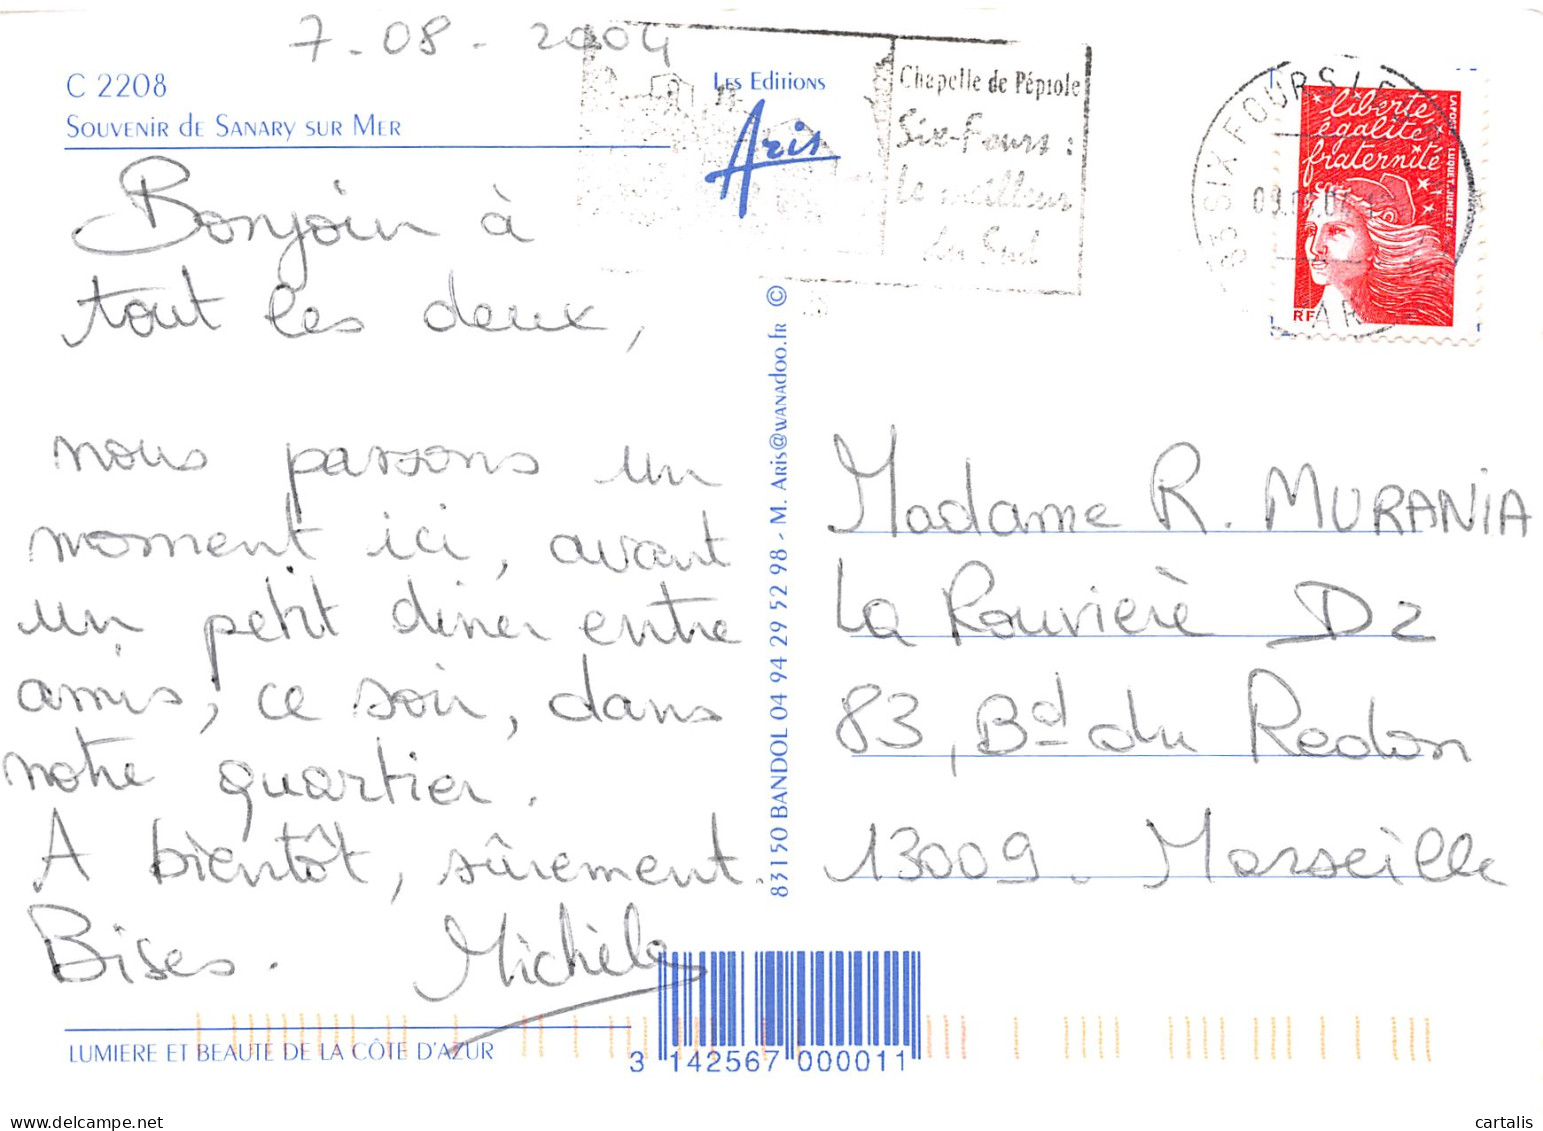 7-08-2004
C 2208
Souvenir de Sanary sur Mer
Les Editions
Aris
Chapelle de Pépiole
Six-Fours :
Le meilleur
du Sud
83 SIX FOURS LES
VAR
liberté
égalité
fraternité
RF
Bonjoin à
tout les deux,
nous passons un
moment ici, avant
un petit diner entre
amis, ce soir, dans
notre quartier.
A bientôt, sûrement.
Bises. Michèle
83150 BANDOL 04 94 29 52 98 - M. Aris@wanadoo.fr ©
Madame R. MURANIA
La Rouvierè D2
83, Bd du Redon
13009. Marseille
LUMIERE ET BEAUTE DE LA CÔTE D'AZUR
3 142567 000011
cartalis